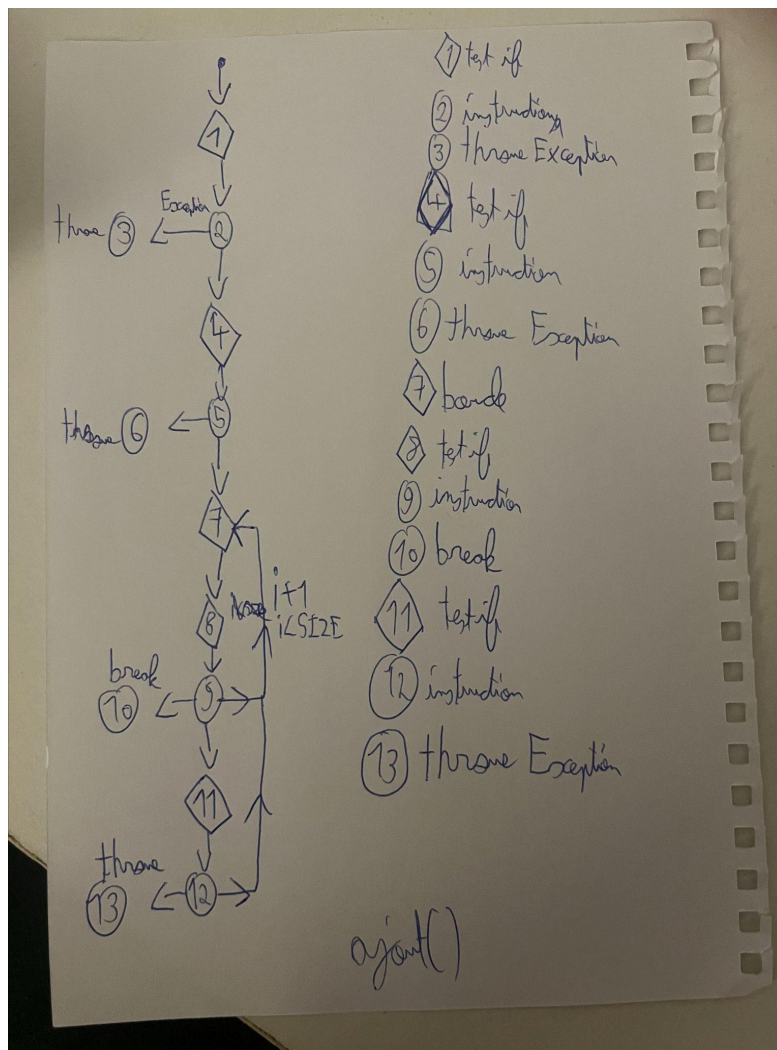 1
Exception
throw 3
2
4
throw 6
5
7
i+1
8
i<SIZE
break
10
9
11
throw
13
12
1 test if
2 instruction
3 throw Exception
4 test if
5 instruction
6 throw Exception
7 boucle
8 test if
9 instruction
10 break
11 test if
12 instruction
13 throw Exception
ajout()